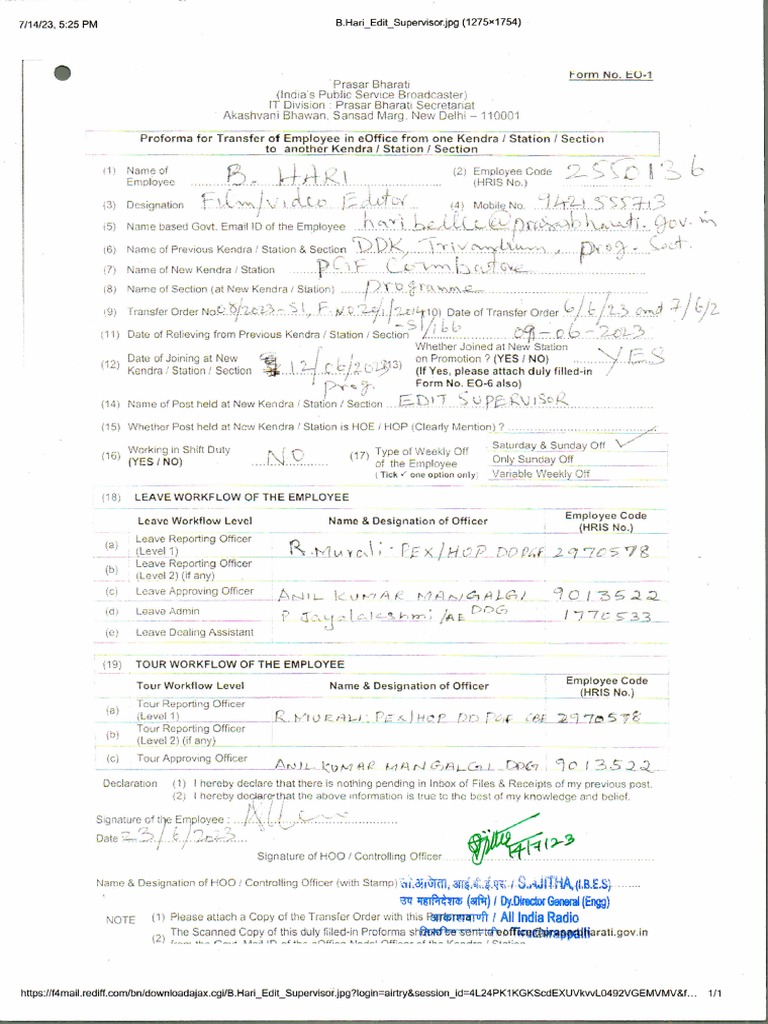 7/14/23, 5:25 PM B.Hari_Edit_Supervisor.jpg (1275×1754)
Form No. EO-1
Prasar Bharati
(India's Public Service Broadcaster)
IT Division : Prasar Bharati Secretariat
Akashvani Bhawan, Sansad Marg, New Delhi – 110001
Proforma for Transfer of Employee in eOffice from one Kendra / Station / Section
to another Kendra / Station / Section
(1) Name of Employee B. HARI (2) Employee Code (HRIS No.) 2550136
(3) Designation Film/Video Editor (4) Mobile No. 9421555713
(5) Name based Govt. Email ID of the Employee @prasarbharati.gov.in
(6) Name of Previous Kendra / Station & Section DDK, Trivandrum, prog. Sect.
(7) Name of New Kendra / Station PGF Coimbatore
(8) Name of Section (at New Kendra / Station) Programme
(9) Transfer Order No 08/2023-SI, F. No (10) Date of Transfer Order 6/6/23 and 7/6/2
-SI/166
(11) Date of Relieving from Previous Kendra / Station / Section 09-06-2023
(12) Date of Joining at New Kendra / Station / Section 12/06/2023 prog. (13) Whether Joined at New Station on Promotion ? (YES / NO) YES
(If Yes, please attach duly filled-in
Form No. EO-6 also)
(14) Name of Post held at New Kendra / Station / Section EDIT SUPERVISOR
(15) Whether Post held at New Kendra / Station is HOE / HOP (Clearly Mention) ?
(16) Working in Shift Duty (YES / NO) NO (17) Type of Weekly Off of the Employee (Tick ✓ one option only)
Saturday & Sunday Off ✓
Only Sunday Off
Variable Weekly Off
(18) LEAVE WORKFLOW OF THE EMPLOYEE
Leave Workflow Level Name & Designation of Officer Employee Code (HRIS No.)
(a) Leave Reporting Officer (Level 1) R. Murali: PEX/HOP DDPGF 2970578
(b) Leave Reporting Officer (Level 2) (if any)
(c) Leave Approving Officer ANIL KUMAR MANGALGI DDG 9013522
(d) Leave Admin P Jayalakshmi /AE 1770533
(e) Leave Dealing Assistant
(19) TOUR WORKFLOW OF THE EMPLOYEE
Tour Workflow Level Name & Designation of Officer Employee Code (HRIS No.)
(a) Tour Reporting Officer (Level 1) R. MURALI: PEX/HOP DD PGF CBE 2970578
(b) Tour Reporting Officer (Level 2) (if any)
(c) Tour Approving Officer ANIL KUMAR MANGALGI DDG 9013522
Declaration (1) I hereby declare that there is nothing pending in Inbox of Files & Receipts of my previous post.
(2) I hereby declare that the above information is true to the best of my knowledge and belief.
Signature of the Employee :
Date 23/6/2023
Signature of HOO / Controlling Officer 14/7/23
Name & Designation of HOO / Controlling Officer (with Stamp) / S.AJITHA, (I.B.E.S)
उप महानिदेशक (अभि) / Dy.Director General (Engg)
आकाशवाणी / All India Radio
Tiruchirappalli
NOTE (1) Please attach a Copy of the Transfer Order with this
(2) The Scanned Copy of this duly filled-in Proforma
from the Govt. Mail ID of the eOffice Nodal Officer of the Kendra / Station
https://f4mail.rediff.com/bn/downloadajax.cgi/B.Hari_Edit_Supervisor.jpg?login=airtry&session_id=4L24PK1KGKScdEXUVkvvL0492VGEMVMV&f… 1/1